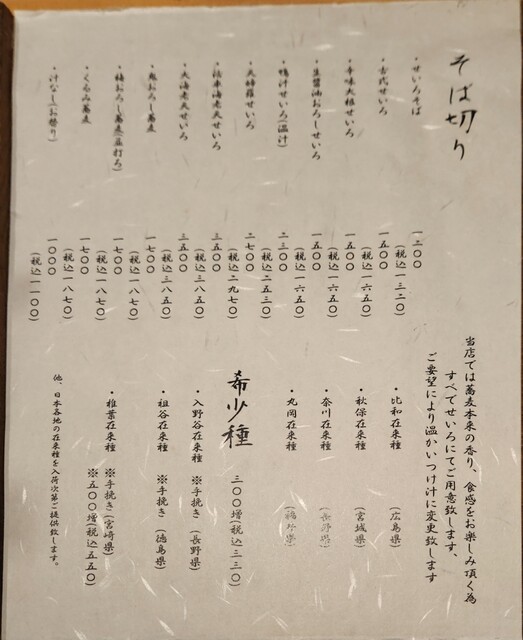 そば切り
・せいろそば 一二〇〇
(税込一三二〇)
・古式せいろ 一五〇〇
(税込一六五〇)
・辛味大根せいろ 一五〇〇
(税込一六五〇)
・生醤油おろしせいろ 一五〇〇
(税込一六五〇)
・鴨汁せいろ(温汁) 二三〇〇
(税込二五三〇)
・天婦羅せいろ 二七〇〇
(税込二九七〇)
・活車海老天せいろ 三五〇〇
(税込三八五〇)
・大海老天せいろ 三五〇〇
(税込三八五〇)
・鬼おろし蕎麦 一七〇〇
(税込一八七〇)
・梅おろし蕎麦 一七〇〇
(税込一八七〇)
・くるみ蕎麦 一七〇〇
(税込一八七〇)
・汁なし(お替り) 一〇〇〇
(税込一一〇〇)
当店では蕎麦本来の香り、食感をお楽しみ頂く為
すべてせいろにてご用意致します、
ご要望により温かいつけ汁に変更致します
・比和在来種 (広島県)
・秋保在来種 (宮城県)
・奈川在来種 (長野県)
・丸岡在来種 (福井県)
希少種 三〇〇増(税込三三〇)
・入野谷在来種 ※手挽き (長野県)
・祖谷在来種 ※手挽き (徳島県)
・椎葉在来種 ※手挽き(宮崎県)
※五〇〇増(税込五五〇)
他、日本各地の在来種を入荷次第ご提供致します。